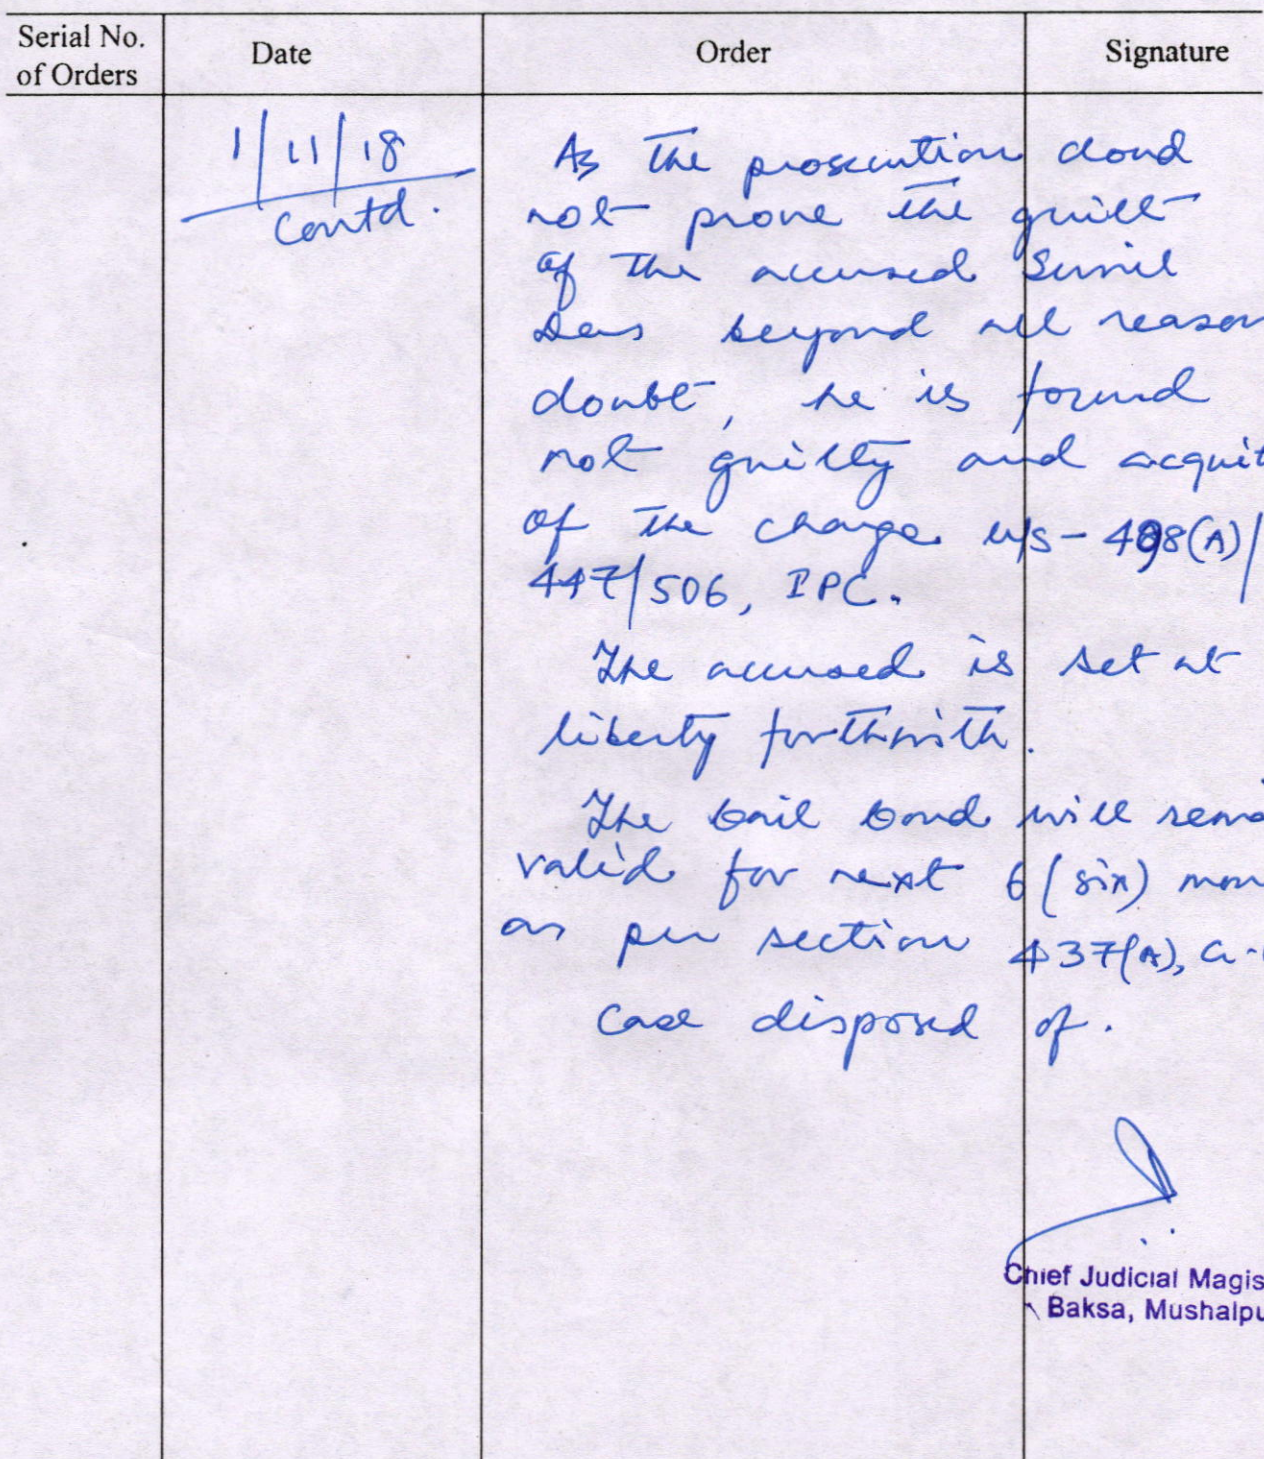 Serial No. of Orders
Date
Order
Signature
1/11/18
Contd.
As the prosecution cloud
not prove the guilt
of the accused Sunil
Das beyond all reason
doubt, he is found
not guilty and acquit
of the charge u/s - 498(A)/
447/506, IPC.
The accused is set at
liberty forthwith.
The bail bond will rema
valid for next 6 (six) mon
as per section 437(A), Cr.
Case disposed of.
Chief Judicial Magis
Baksa, Mushalpu